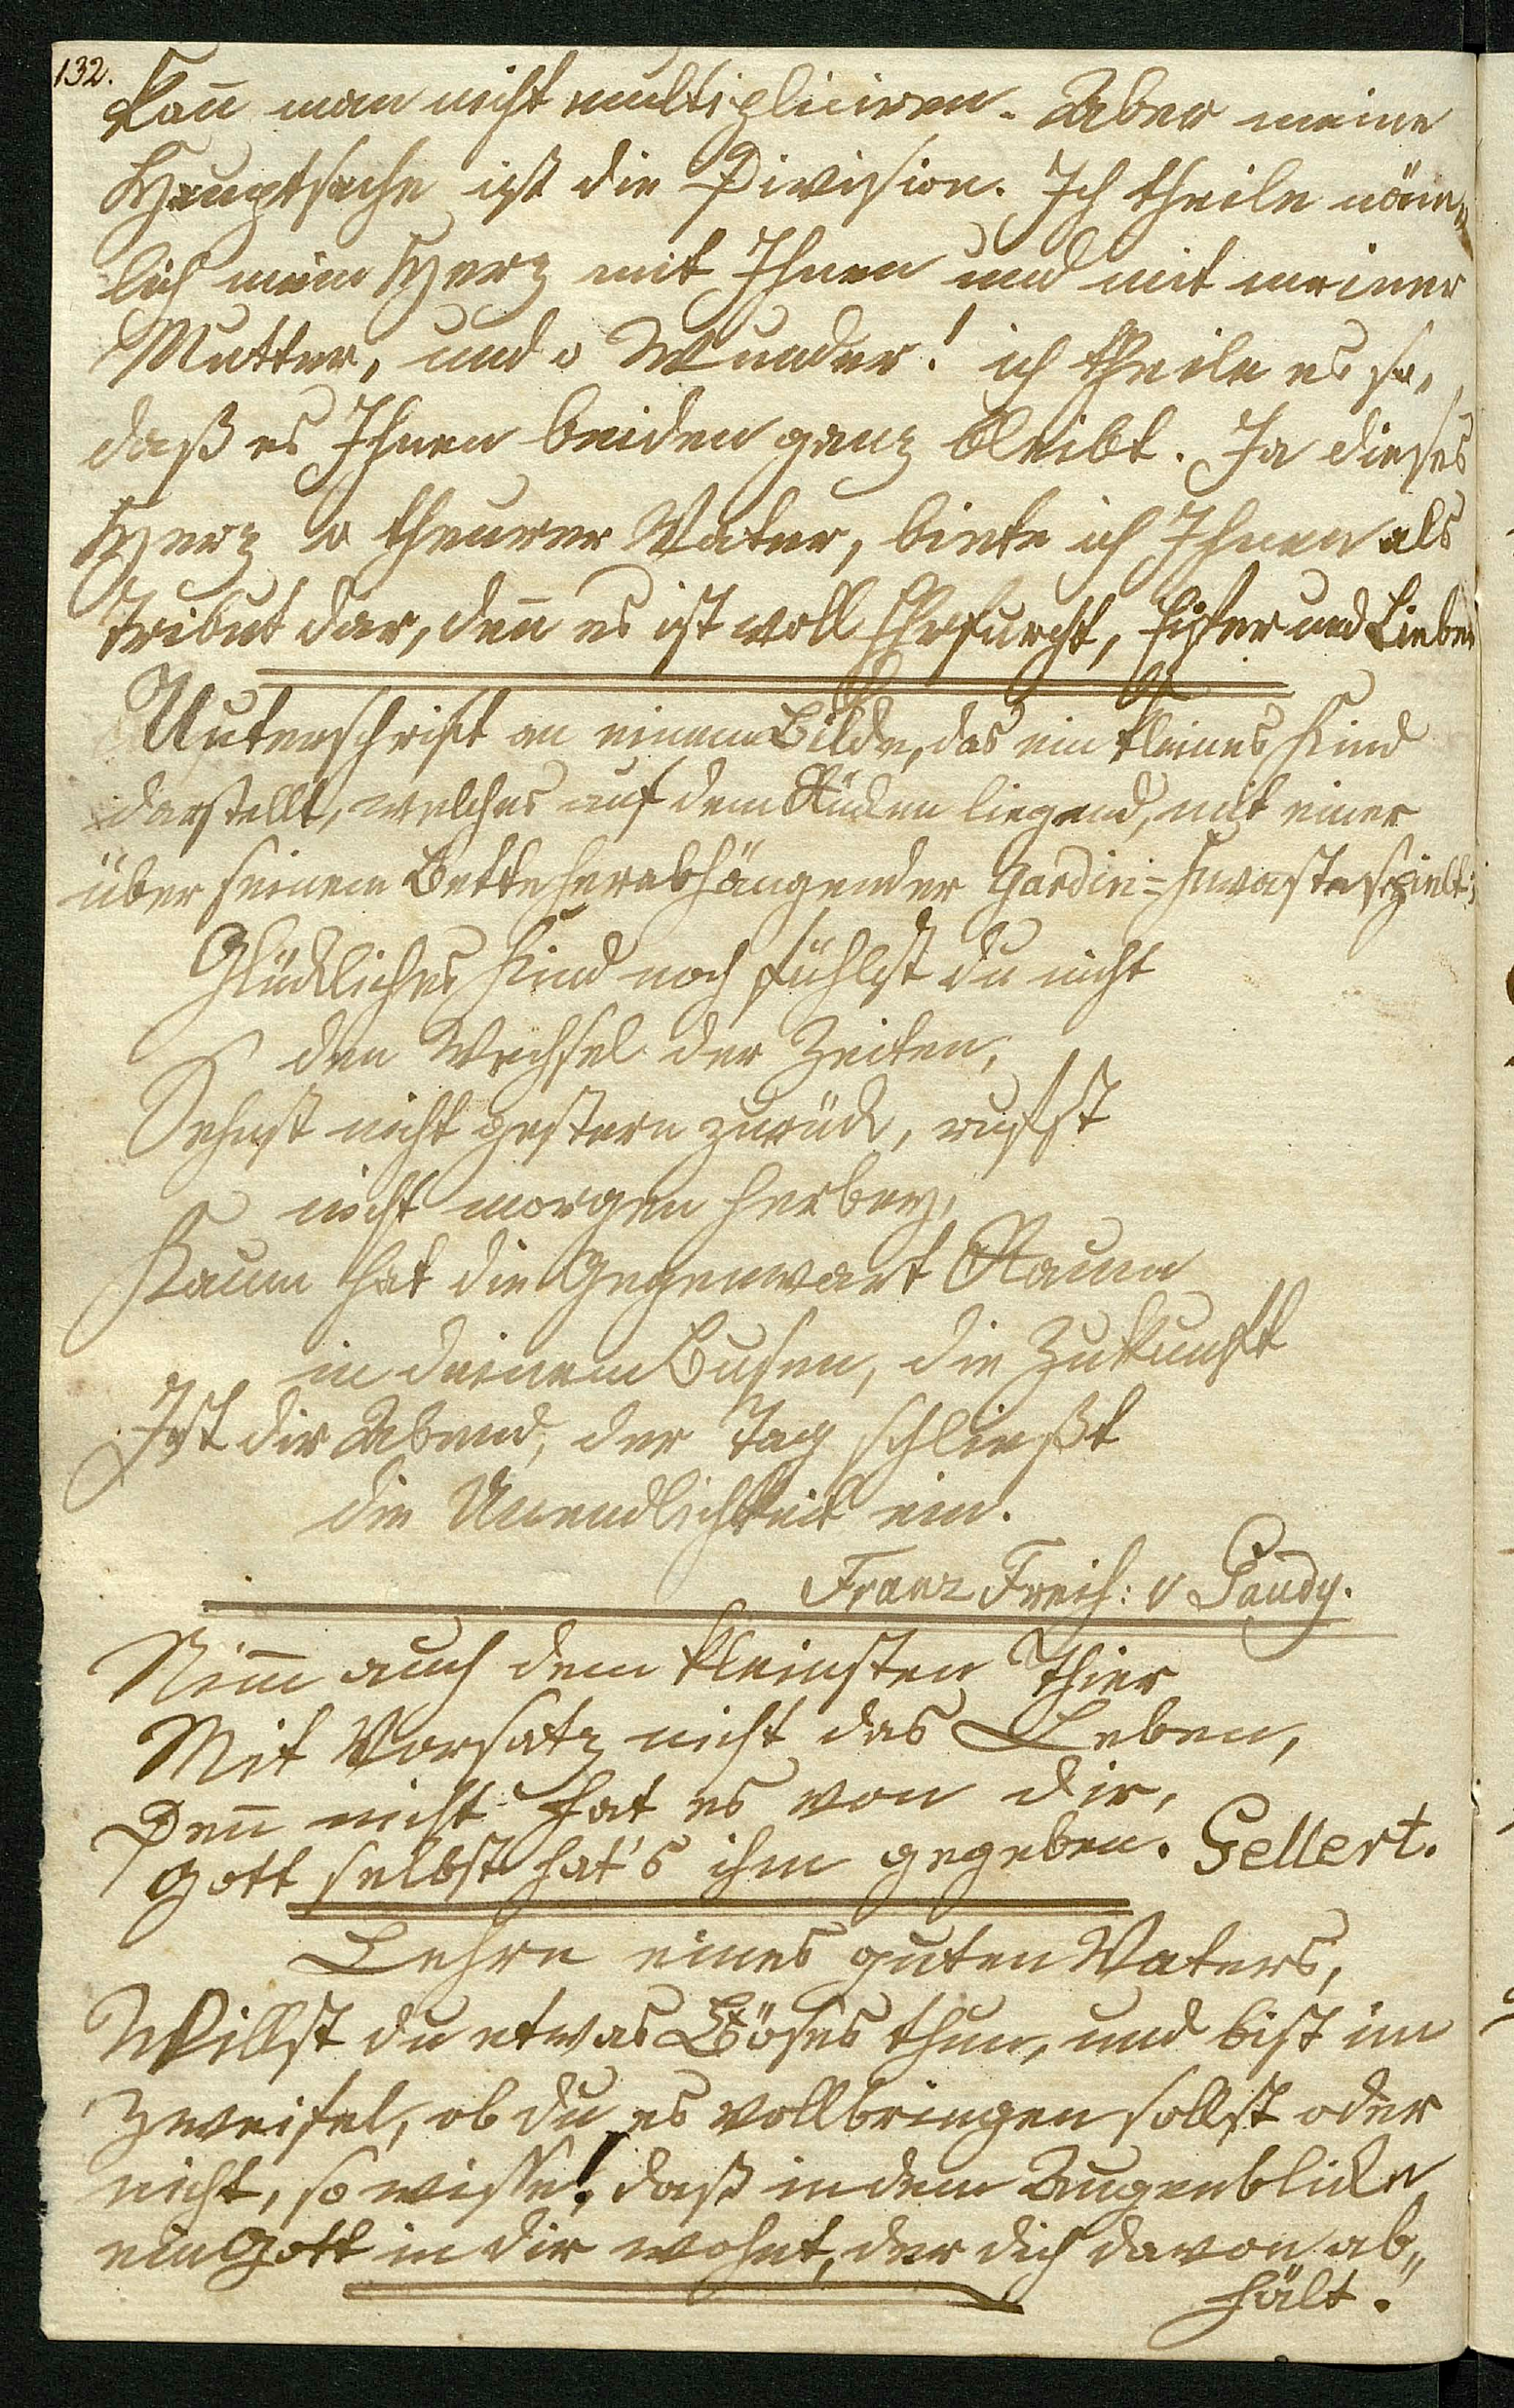 132.
kan̄ man nicht multipliciren. Aber meine
Hauptsache ist die Division. Ich theile näm„
lich mein Herz mit Ihnen und mit meiner
Mutter, und o Wunder! ich theile es so,
daß es Ihnen beiden ganz bleibt. Ja dieses
Herz o theurer Vater, biete ich Ihnen als
Tribut dar, den̄ es ist voll Ehrfurcht, Eifer und Liebe.
Unterschrift an einem Bilde, das ein kleines Kind
darstellt, welches auf dem Rücken liegend, mit einer
über seinem Bette herabhängender Gardin=Quaste spielt:
Glückliches Kind noch fühlst du nicht
den Wechsel der Zeiten,
Sehnst nicht gestern zurück, rufst
nicht morgen herbey,
Kaum hat die Gegenwart Raum
in deinem Busen, die Zukunft
Ist dir Abend, der Tag schließt
die Unendlichkeit ein.
Franz Freih: v Gaudy.
Nim̄ auch dem kleinsten Thier
Mit Vorsatz nicht das Leben,
Den̄ nicht hat es von dir,
Gott selbst hat's ihm gegeben. Gellert.
Lehre eines guten Vaters,
Willst du etwas Böses thun, und bist im
Zweifel, ob du es vollbringen sollst oder
nicht, so wisse! daß in dem Augenblicke
ein Gott in dir wohnt, der dich davon ab„
hält.